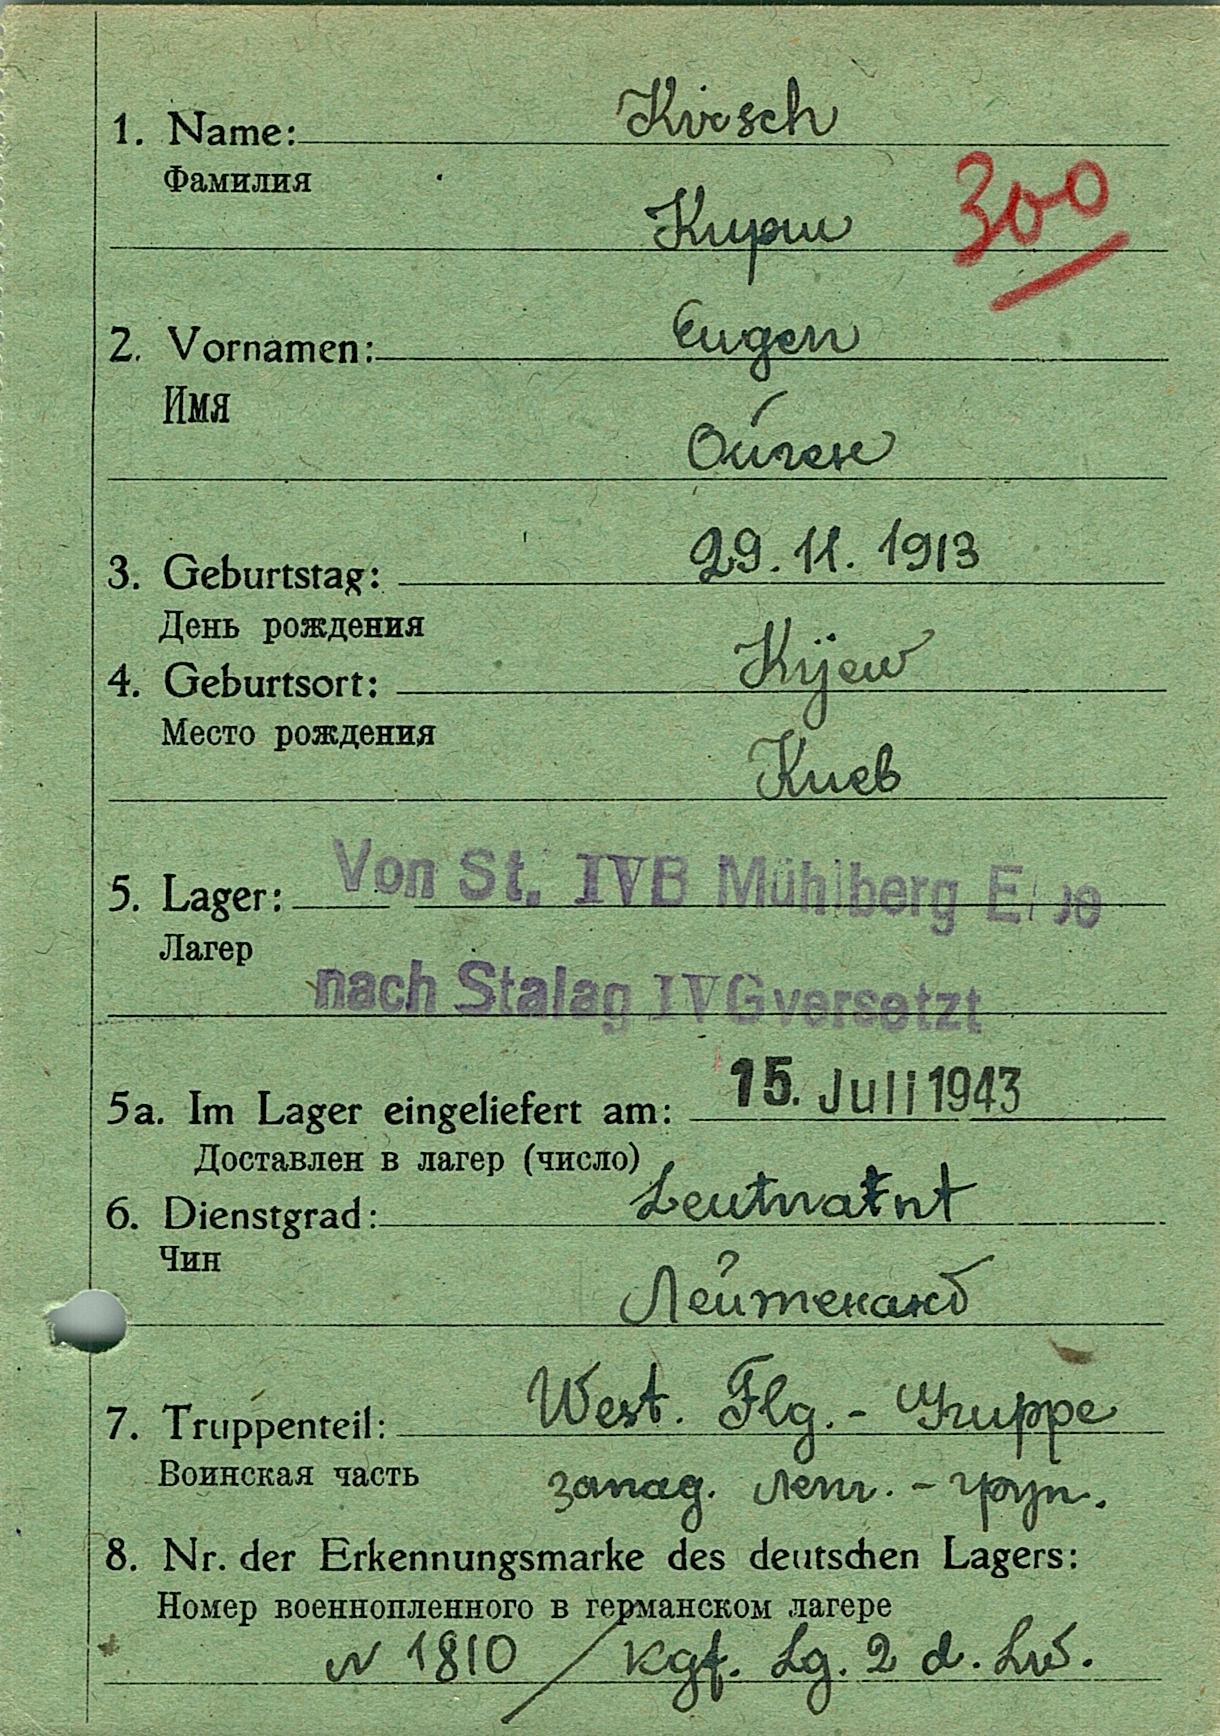 1. Name: Kirsch
Фамилия
Кирш 300
2. Vornamen: Eugen
Имя
Ойген
3. Geburtstag: 29.11.1913
День рождения
4. Geburtsort: Kijew
Место рождения
Киев
5. Lager: Von St. IVB Mühlberg Elbe
Лагер
nach Stalag IVG versetzt
5a. Im Lager eingeliefert am: 15. Juli 1943
Доставлен в лагер (число)
6. Dienstgrad: Leutnatnt
Чин
Лейтенанд
7. Truppenteil: West. Flg.- Gruppe
Воинская часть запад. лепг. - груп.
8. Nr. der Erkennungsmarke des deutschen Lagers:
Номер военнопленного в германском лагере
N 1810 / Kgf. Lg. 2 d. Lw.